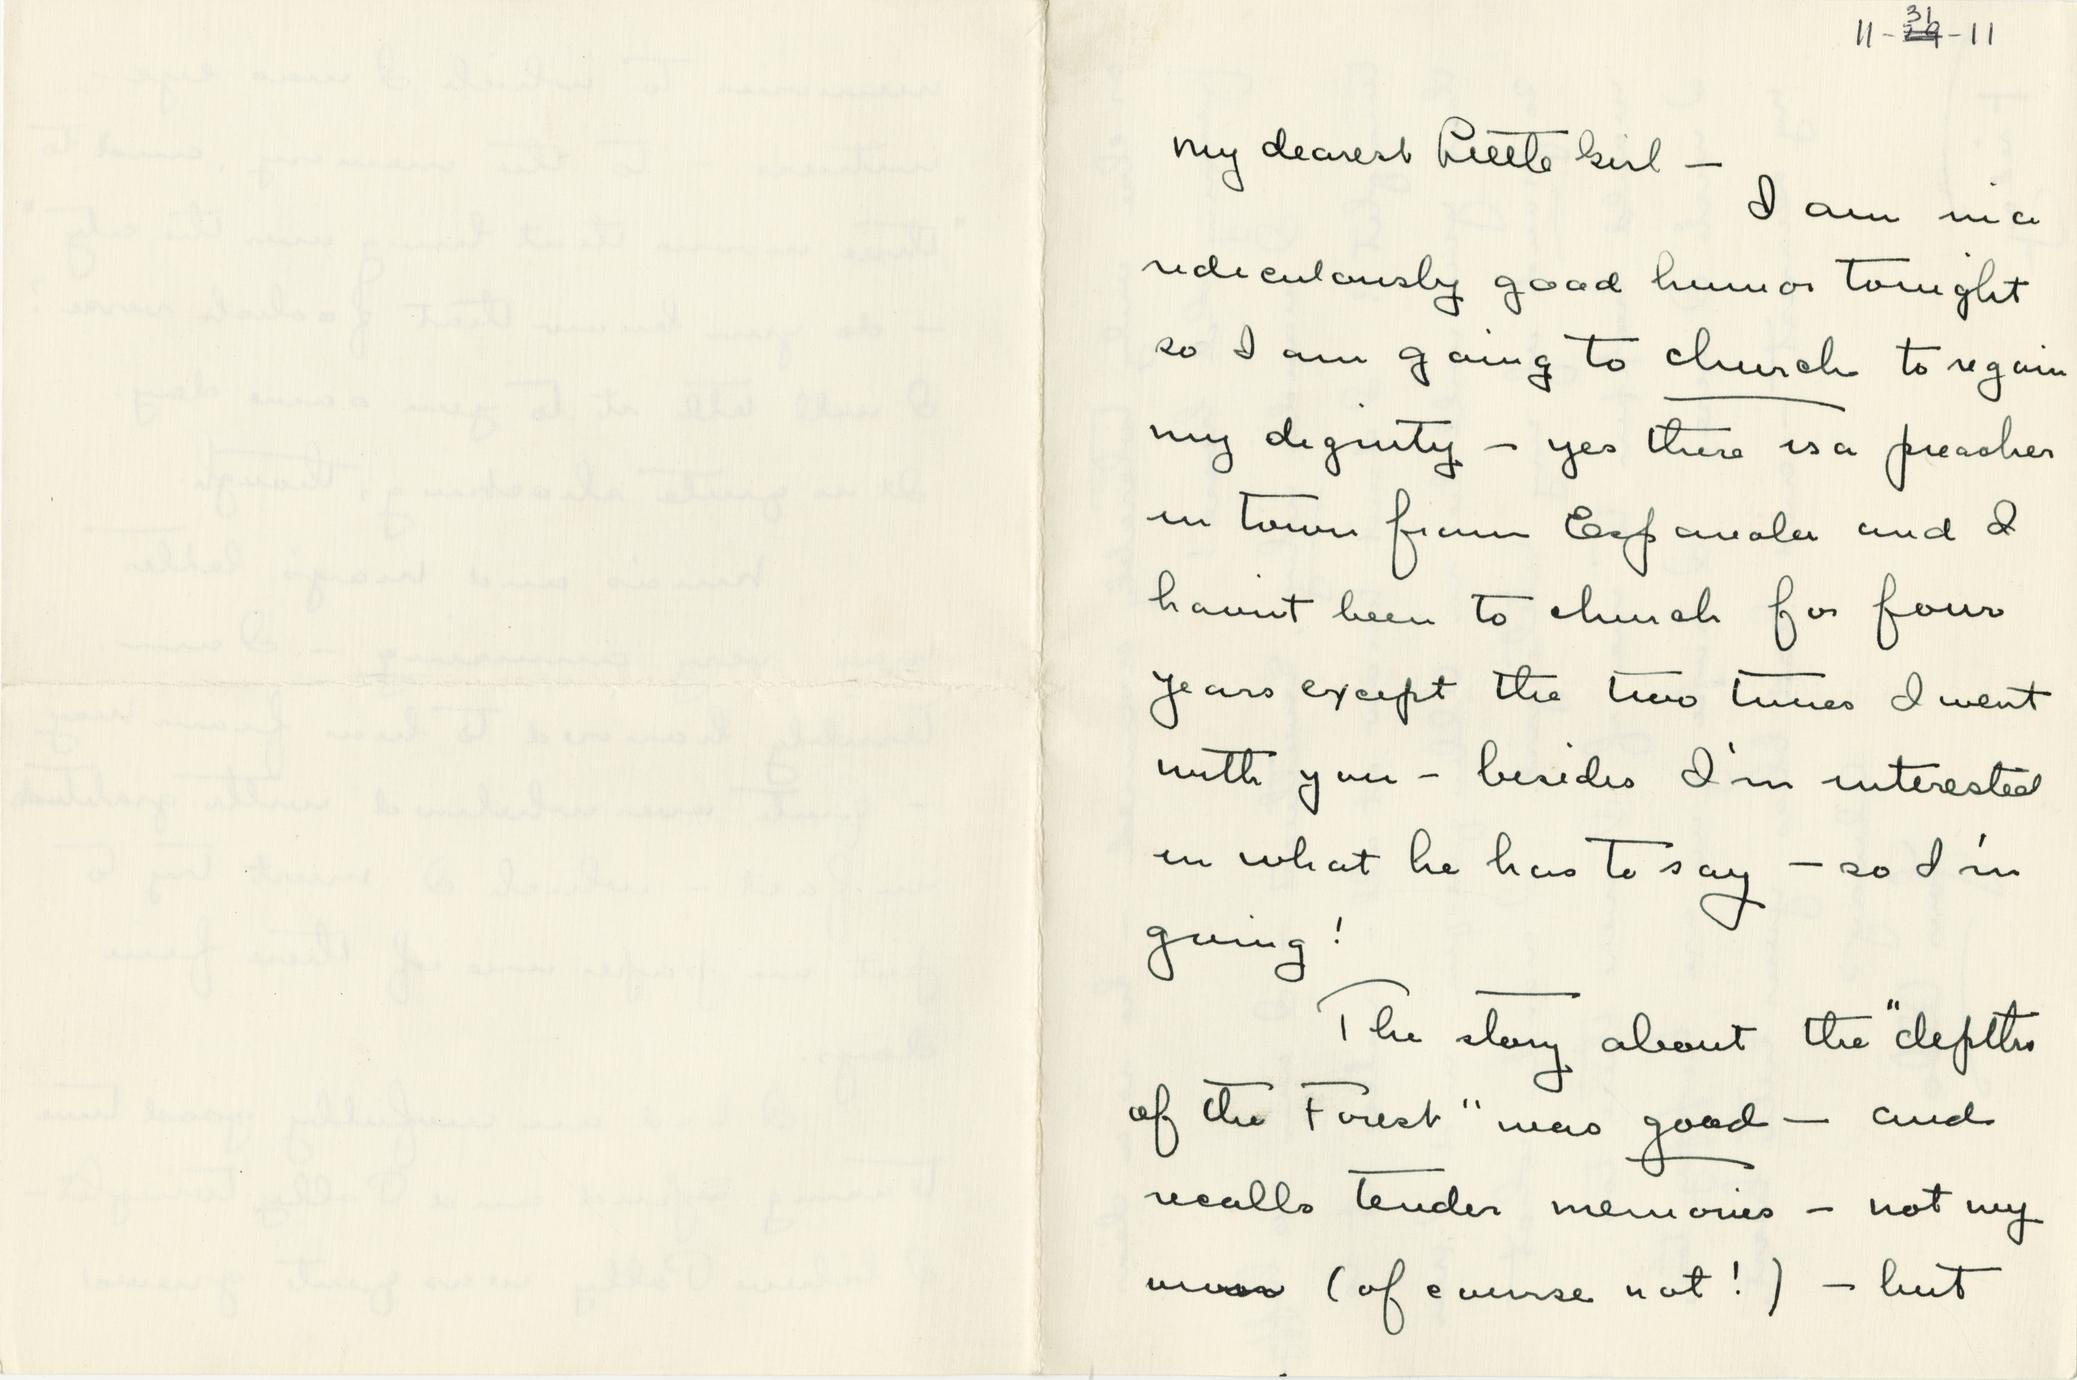 11-31-11
My dearest Little Girl —
I am in a
rediculously good humor tonight
so I am going to church to regain
my dignity — yes there is a preacher
in town from Espanola and I
havn't been to church for four
years except the two times I went
with you — besides I'm interested
in what he has to say — so I'm
going!
The story about the "depths
of the Forest" was good — and
recalls tender memories — not my
own (of course not!) — but